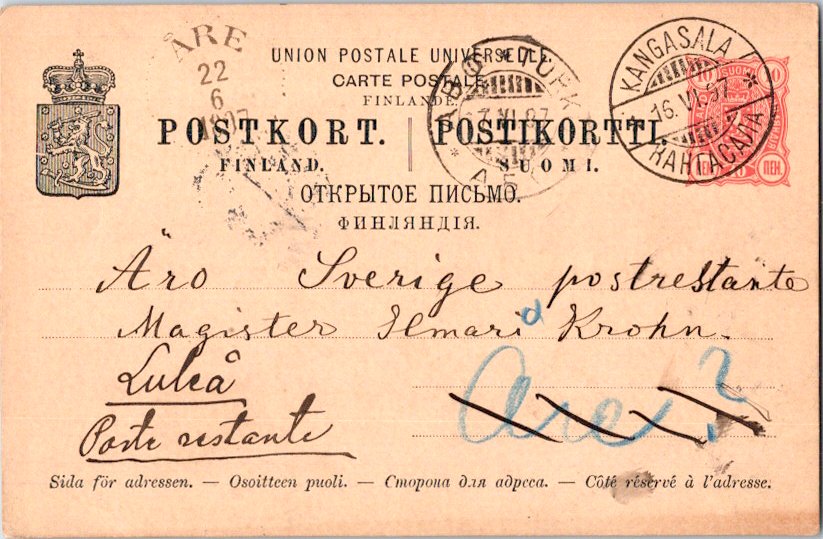 ÅRE
22
6
1897
UNION POSTALE UNIVERSELLE.
CARTE POSTALE
FINLANDE
POSTKORT. POSTIKORTTI.
FINLAND. SUOMI.
ОТКРЫТОЕ ПИСЬМО.
ФИНЛЯНДІЯ.
ÅBO * TURKU
17.VI.97
KANGASALA
16.VI.97
КАНГАСАЛА
10 SUOMI 10
ПЕН. ПЕН.
Äro Sverige postrestante
Magister Ilmari Krohn.
Luleå
Åre?
Poste restante
Sida för adressen. — Osoitteen puoli. — Сторона для адреса. — Côté réservé à l'adresse.